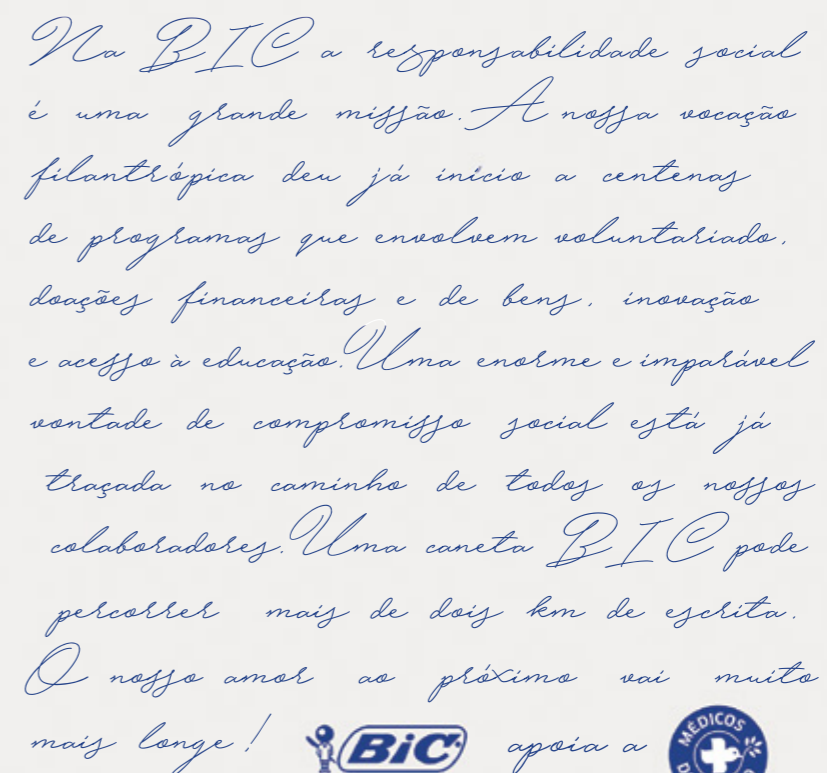 Na BIC a responsabilidade social
é uma grande missão. A nossa vocação
filantrópica deu já início a centenas
de programas que envolvem voluntariado,
doações financeiras e de bens, inovação
e acesso à educação. Uma enorme e imparável
vontade de compromisso social está já
traçada no caminho de todos os nossos
colaboradores. Uma caneta BIC pode
percorrer mais de dois km de escrita.
O nosso amor ao próximo vai muito
mais longe! BiC apoia a MÉDICOS